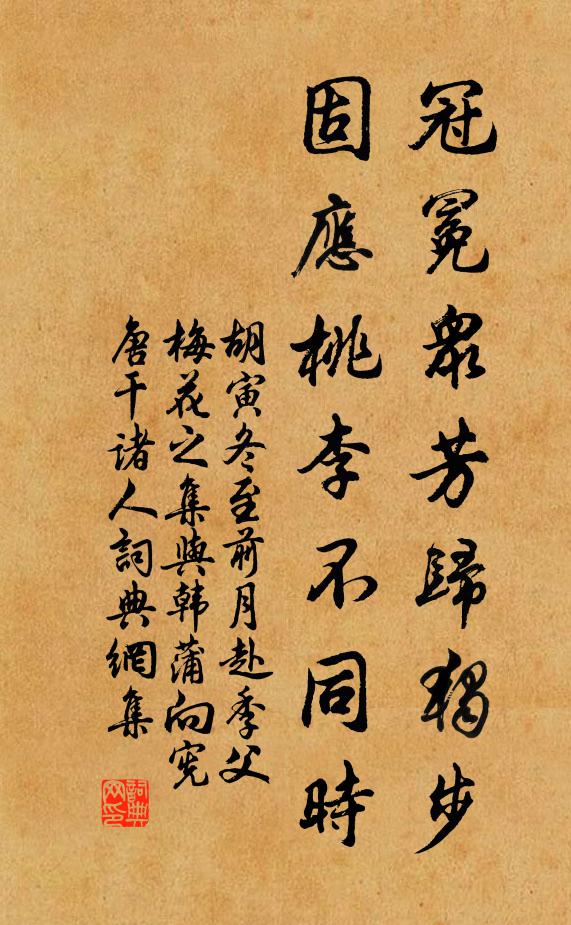 冠冕衆芳歸獨步
固應桃李不同時
胡寅冬至前月赴季父
梅花之集與韩蒲向憲
唐干诸人詞典網集
詞典網印